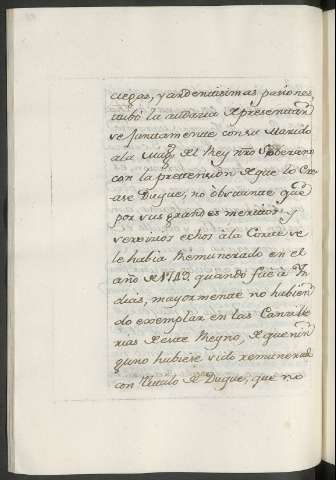 ciegas, y ardentisimas pasiones,
tubó la audacia de presentar
se juntamente con su Marido
a la Mag.d del Rey nr̃o Soberano
con la pretension de que lo Cre
ase Duque, no obstante que
por sus grandes meritos y
servicios echos à la Corte se
le habia Remunerado en el
año de 1742 quando fué à Yn
dias, mayormente no habien
do exemplar en las
de este Reyno, de que nin
guno hubiese sido remunerado
con Titulo de Duque, que no